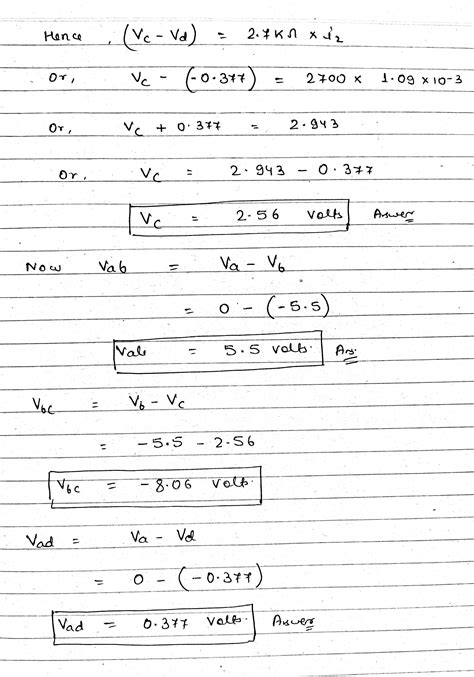 Hence, (Vc - Vd) = 2.7KΩ × i2
Or, Vc - (-0.377) = 2700 × 1.09 × 10-3
Or, Vc + 0.377 = 2.943
Or, Vc = 2.943 - 0.377
Vc = 2.56 Volts Answer
Now Vab = Va - Vb
= 0 - (-5.5)
Vab = 5.5 Volts. Ans.
Vbc = Vb - Vc
= -5.5 - 2.56
Vbc = -8.06 Volts.
Vad = Va - Vd
= 0 - (-0.377)
Vad = 0.377 Volts. Answer